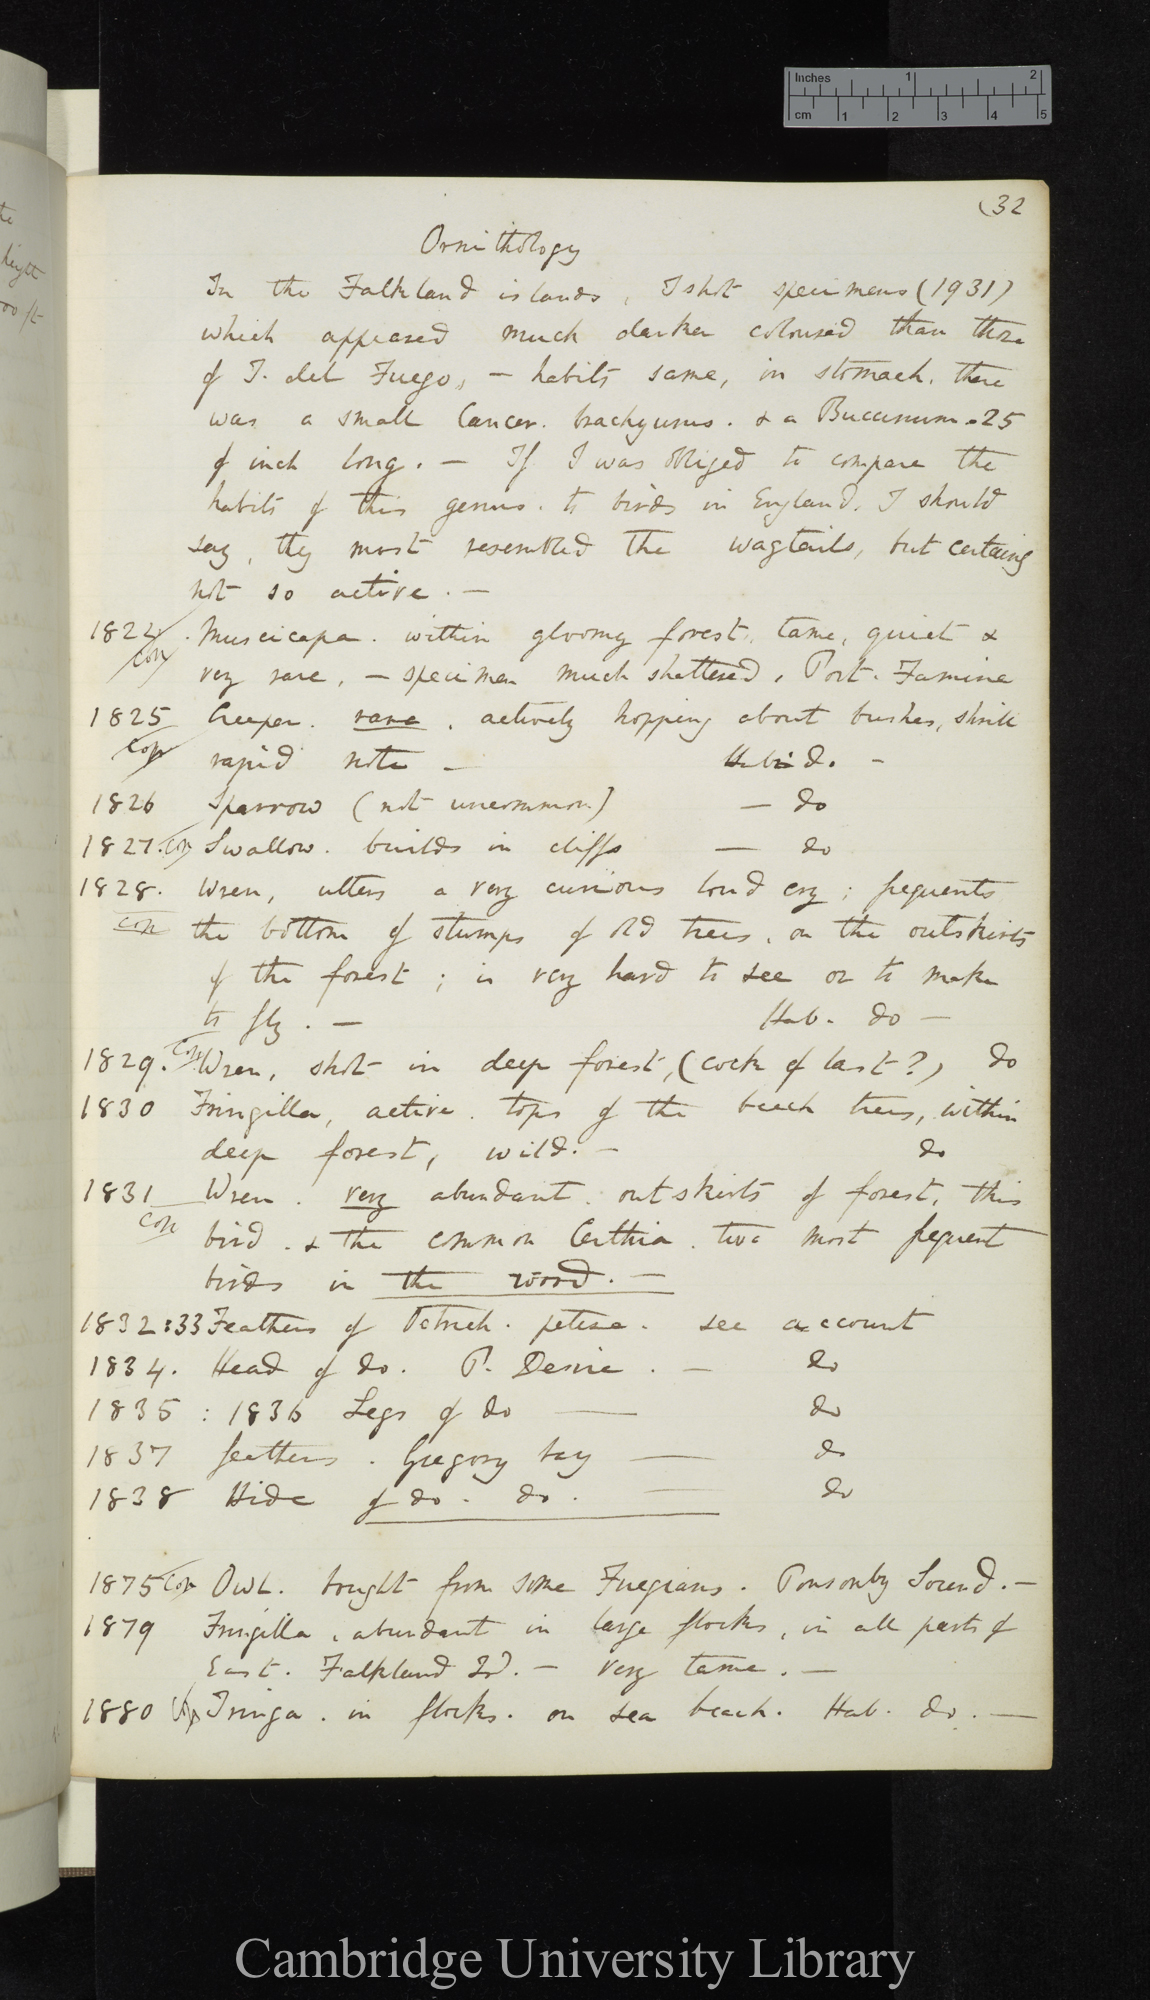 Inches 1 2
cm 1 2 3 4 5
(32
Ornithology
In the Falkland islands, I shot specimens (1931)
which appeared much darker coloured than those
of T. del Fuego, — habits same, in stomach. there
was a small Cancer. brachyurus. & a Buccinum .25
of inch long. — If I was obliged to compare the
habits of this genus. to birds in England. I should
say, they most resembled the wagtails, but certainly
not so active. —
1822. Muscicapa. within gloomy forest. tame, quiet &
Cop very rare, — specimen much shattered, Port. Famine
1825 Creeper. rare. actively hopping about bushes, shrill
Cop rapid note — Hab: do. —
1826 Sparrow (not uncommon) — do
1827. Cop Swallow. builds in cliffs — do
1828. Wren, utters a very curious loud cry; frequents
Cop the bottom of stumps of old trees, on the outskirts
of the forest; is very hard to see or to make
to fly. — Hab. do —
1829. Cop Wren, shot in deep forest, (cock of last?) do
1830 Fringilla, active. tops of the beech trees, within
deep forest, wild. — do
1831 Wren. very abundant. outskirts of forest, this
Cop bird. & the common Certhia. two most frequent
birds in the wood. —
1832:33 Feathers of Ostrich. petise. see account
1834. Head of do. P. Desire. — do
1835: 1836 Legs of do — do
1837 feathers. Gregory bay — do
1838 Hide of do. do. — do
1875 Cop Owl. bought from some Fuegians. Ponsonby Sound. —
1879 Fringilla, abundant in large flocks, in all parts of
East. Falkland Isd. — very tame. —
1880 Tringa. in flocks. on sea beach. Hab. do. —
Cambridge University Library